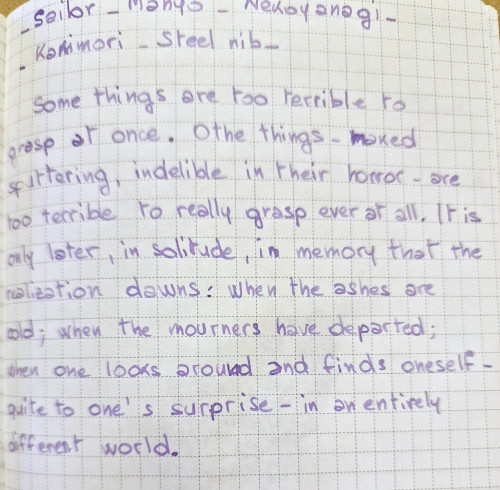 - Sailor - Manyo - Nekoyanagi -
- Kakimori - Steel nib -
Some things are too terrible to
grasp at once. Othe things - naked
sputtering, indelible in their horror - are
too terrible to really grasp ever at all. It is
only later, in solitude, in memory that the
realization dawns: when the ashes are
cold; when the mourners have departed;
when one looks around and finds oneself -
quite to one's surprise - in an entirely
different world.